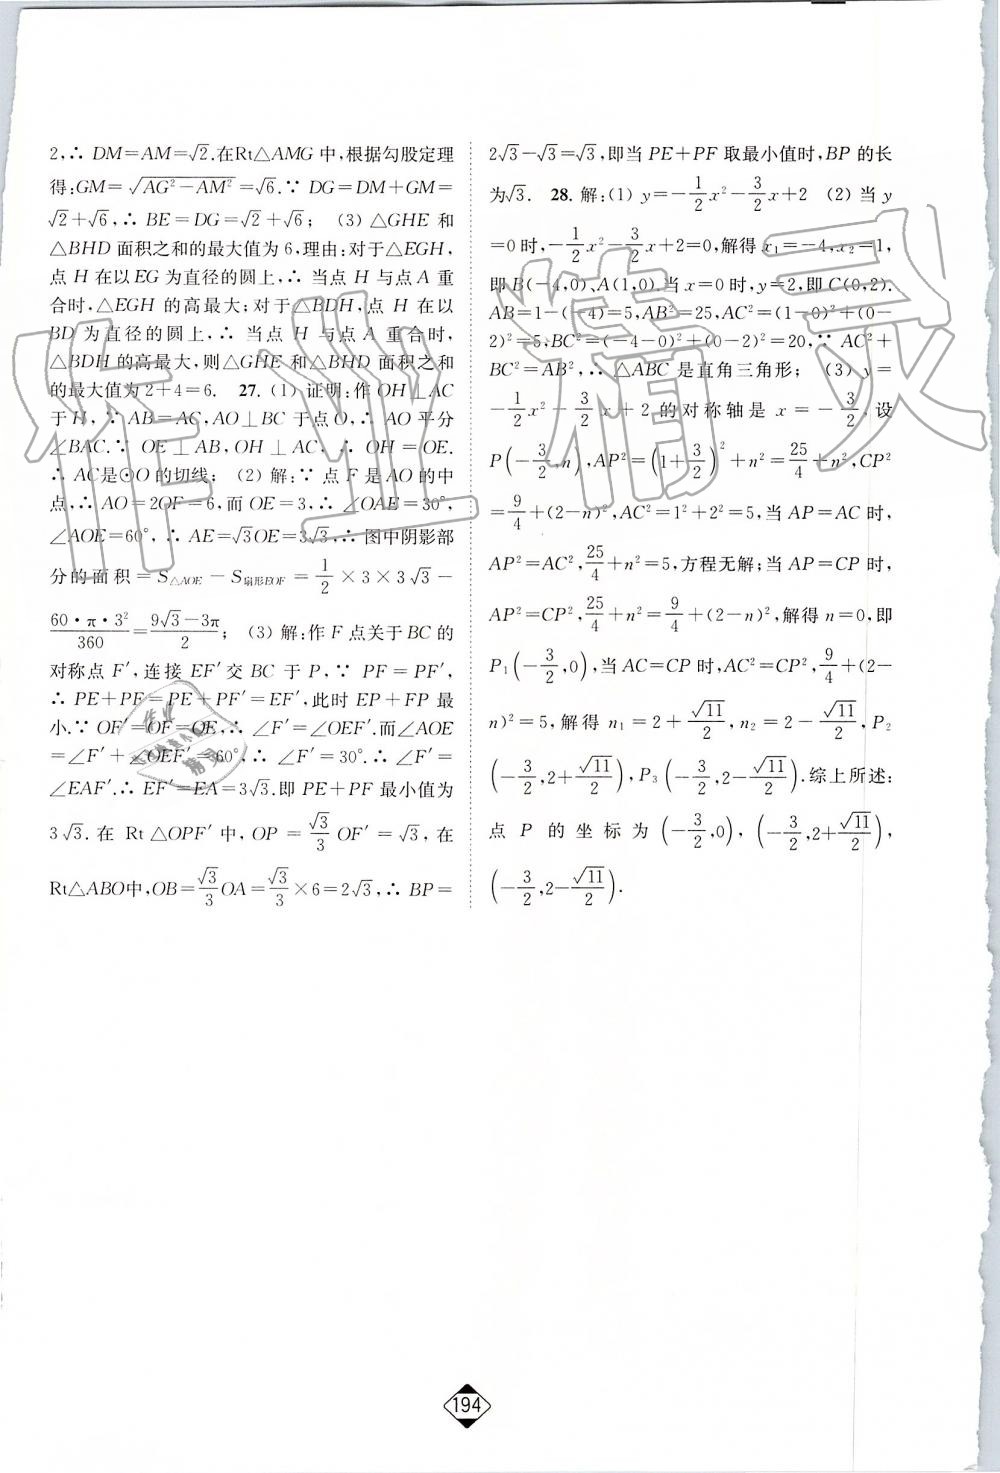 2,∴ DM=AM=√2.在Rt△AMG 中,根据勾股定理
得:GM=√(AG²-AM²)=√6.∵ DG=DM+GM=
√2+√6,∴ BE=DG=√2+√6; (3) △GHE 和
△BHD 面积之和的最大值为 6,理由:对于△EGH,
点 H 在以 EG 为直径的圆上,∴ 当点 H 与点 A 重
合时,△EGH 的高最大;对于△BDH,点 H 在以
BD 为直径的圆上,∴ 当点 H 与点 A 重合时,
△BDH 的高最大,则△GHE 和△BHD 面积之和
的最大值为 2+4=6. 27.(1) 证明:作 OH⊥AC
于 H,∵ AB=AC,AO⊥BC 于点 O,∴ AO 平分
∠BAC.∵ OE⊥AB,OH⊥AC,∴ OH=OE.
∴ AC是⊙O 的切线; (2) 解:∵ 点 F 是 AO 的中
点,∴ AO=2OF=6,而 OE=3,∴ ∠OAE=30°,
∠AOE=60°,∴ AE=√3OE=3√3,∴ 图中阴影部
分的面积=S△AOE-S扇形EOF=1/2×3×3√3-
60·π·3²/360=(9√3-3π)/2; (3) 解:作 F 点关于 BC 的
对称点 F′,连接 EF′交 BC 于 P,∵ PF=PF′,
∴ PE+PF=PE+PF′=EF′,此时 EP+FP 最
小.∵ OF′=OF=OE,∴ ∠F′=∠OEF′.而∠AOE
=∠F′+∠OEF′=60°,∴ ∠F′=30°.∴ ∠F′=
∠EAF′.∴ EF′=EA=3√3.即 PE+PF 最小值为
3√3.在 Rt△OPF′中,OP=√3/3 OF′=√3,在
Rt△ABO中,OB=√3/3 OA=√3/3×6=2√3,∴ BP=
2√3-√3=√3,即当 PE+PF 取最小值时,BP 的长
为√3. 28.解:(1) y=-1/2x²-3/2x+2 (2) 当 y
=0时,-1/2x²-3/2x+2=0,解得 x₁=-4,x₂=1,
即 B(-4,0)、A(1,0).当 x=0时,y=2,即 C(0,2).
AB=1-(-4)=5,AB²=25,AC²=(1-0)²+(0-
2)²=5,BC²=(-4-0)²+(0-2)²=20,∵ AC²+
BC²=AB²,∴ △ABC 是直角三角形; (3) y=
-1/2x²-3/2x+2 的对称轴是 x=-3/2,设
P(-3/2,n),AP²=(1+3/2)²+n²=25/4+n²,CP²
=9/4+(2-n)²,AC²=1²+2²=5,当 AP=AC 时,
AP²=AC²,25/4+n²=5,方程无解;当 AP=CP 时,
AP²=CP²,25/4+n²=9/4+(2-n)²,解得 n=0,即
P₁(-3/2,0),当 AC=CP 时,AC²=CP²,9/4+(2-
n)²=5,解得 n₁=2+√11/2,n₂=2-√11/2,P₂
(-3/2,2+√11/2),P₃(-3/2,2-√11/2).综上所述:
点 P 的坐标为(-3/2,0),(-3/2,2+√11/2),
(-3/2,2-√11/2).
作业精灵
194